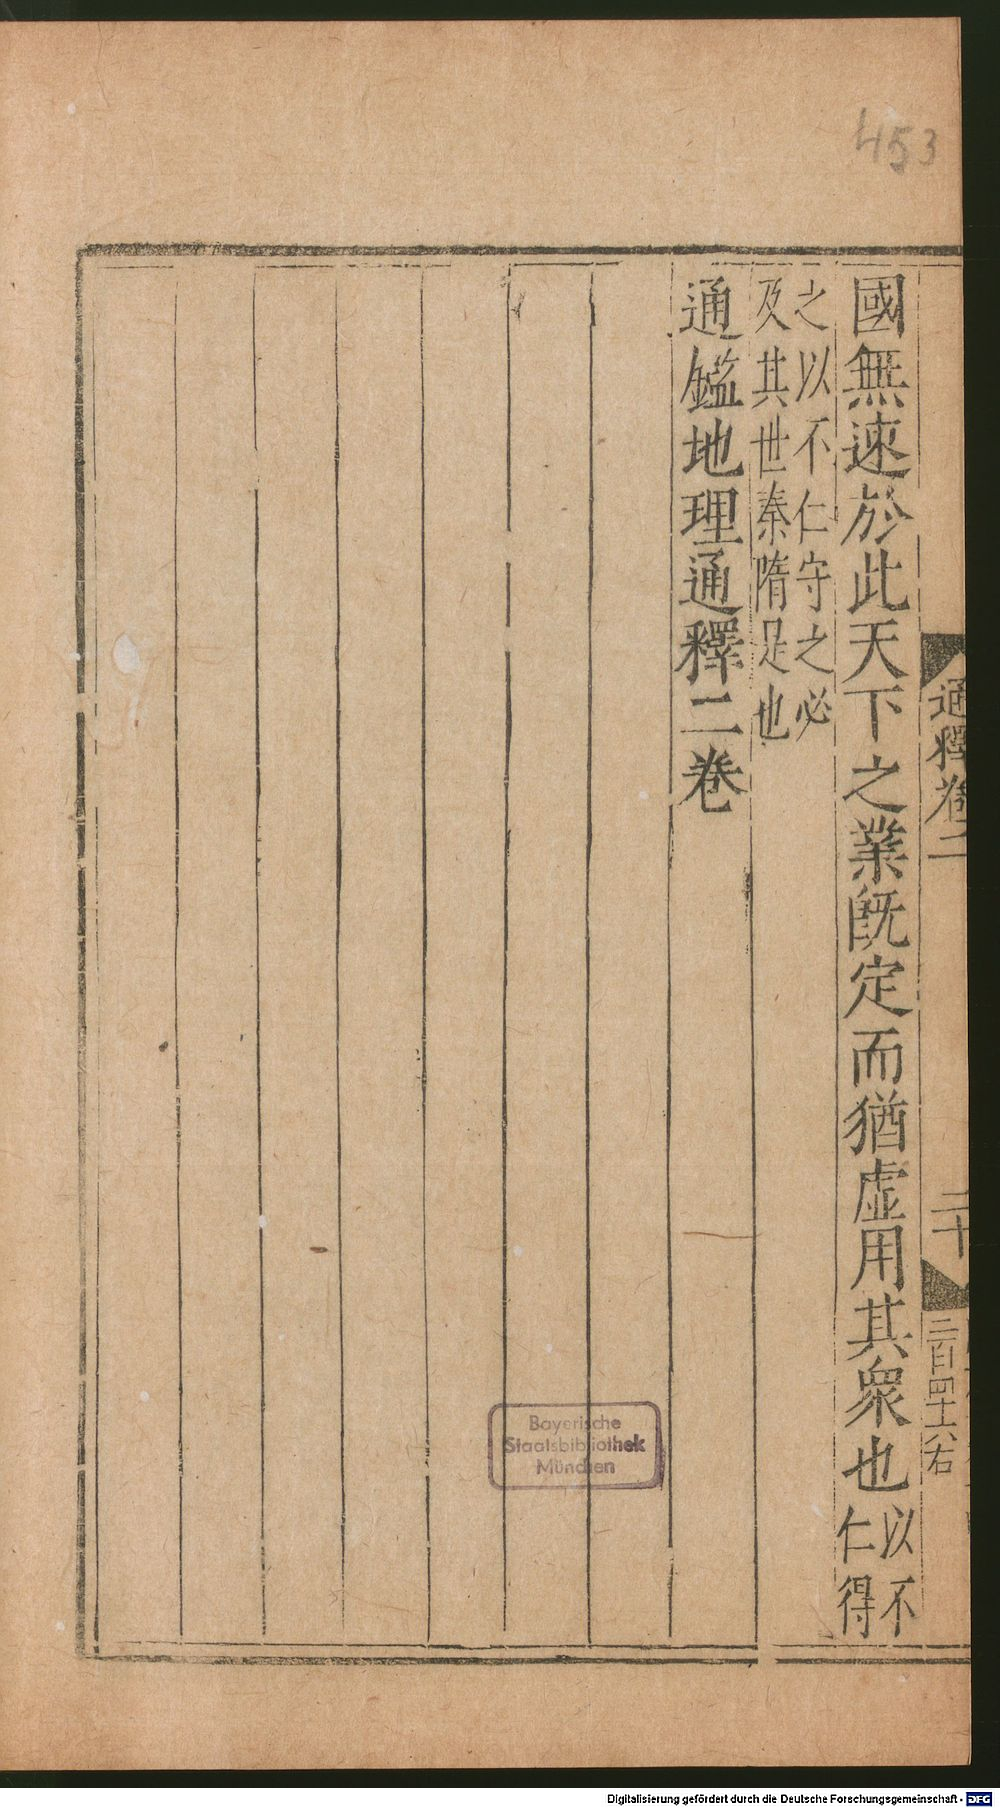 453
通釋卷二
二十
三百四十六右
國無速於此天下之業旣定而猶虛用其衆也以不
仁得
之以不仁守之必
及其世秦隋是也
通鑑地理通釋二卷
Bayerische
Staatsbibliothek
München
Digitalisierung gefördert durch die Deutsche Forschungsgemeinschaft - DFG